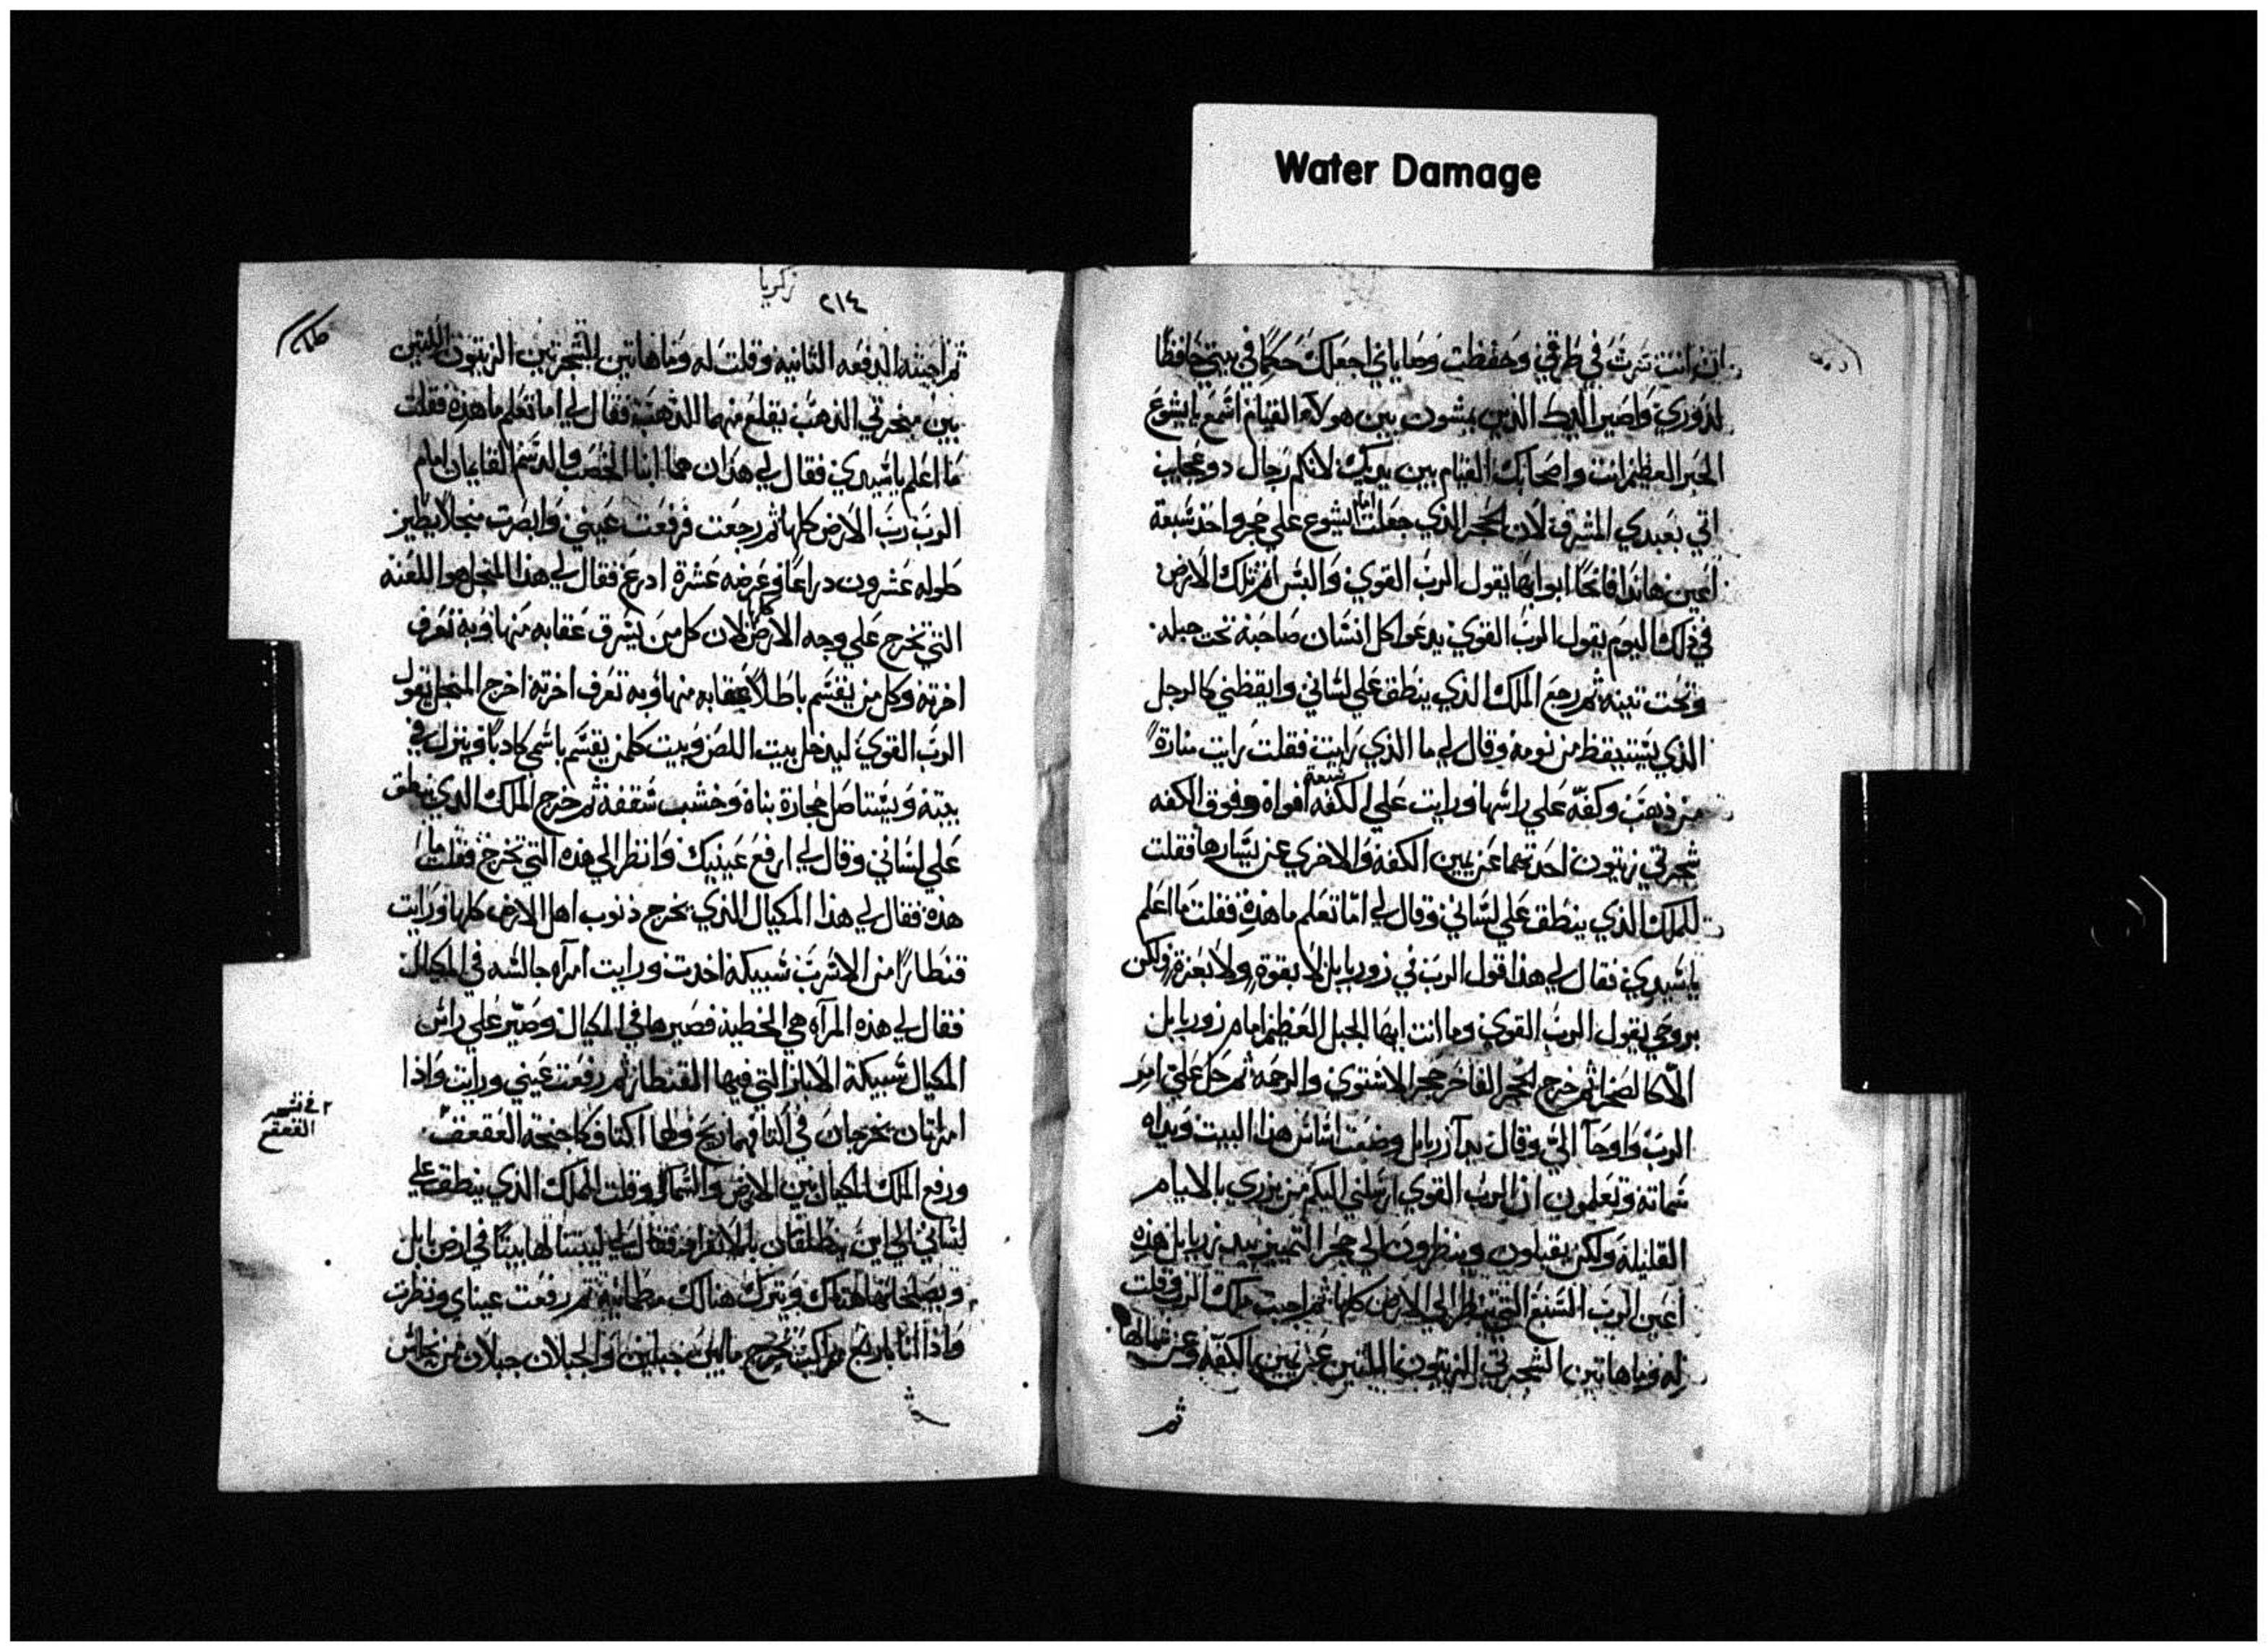 Water Damage
ان انت سرت في طرقي وحفظت وصاياي اجعلك حكمًا في بيتي حافظًا
لدوري واصير لك الذين يمشون بين هولاء القيام اسمع يا يشوع
الحبر العظيم انت واصحابك القيام بين يديك لانكم رجال دو عجايب
اتي بعبدي المشرق لان الحجر الذي جعلت امام يشوع علي حجر واحد سبعة
اعين هانذا فاتحًا ابوابها يقول الرب القوي والتمس اثم تلك الارض
في ذلك اليوم يقول الرب القوي يدعوا كل انسان صاحبه تحت حبله
وتحت تينه ثم رجع الملك الذي ينطق علي لساني وايقظني كالرجل
الذي يستيقظ من نومه وقال لي ما الذي رايت فقلت رايت منارة
من ذهب وكفه علي راسها ورايت علي الكفه سبعة افواه وفوق الكفه
شجرتي زيتون احدتهما عن يمين الكفة والاخري عن يسارها فقلت
للملك الذي ينطق علي لساني وقال لي اما تعلم ما هذه فقلت ما اعلم
يا سيدي فقال لي هذا قول الرب في زوربابل لا بقوة ولا بعزة ولكن
بروحي يقول الرب القوي وما انت ايها الجبل العظيم امام زوربابل
الا كالصحرا ثم خرج الحجر الفاخر حجر الاستوي والرحمة ثم حل علي امر
الرب واوحآ الي وقال يدآ زربابل وضعت اساس هذا البيت ويداه
تماته وتعلمون ان الرب القوي ارسلني اليكم من يزري بالايام
القليلة ولكن يقبلون وينظرون الي حجر التمييز بيد زربابل هذه
اعين الرب السبع التي تنظر الي الارض كلها ثم اجبت ملك الرب وقلت
له وما هاتين الشجرتي الزيتون اللتين عن يمين الكفه وعن شمالها
ثم
زكريا
٢١٤
ثم اجبته الدفعه الثانيه وقلت له وما هاتين الشجرتين الزيتون اللتين
بين منخرتي الذهب يقلع منهما الذهب فقال لي اما تعلم ما هذه فقلت
ما اعلم يا سيدي فقال لي هذان هما ابنا الخصب والدسم القايمان امام
الرب رب الارض كلها ثم رجعت فرفعت عيني وابصرت منجلًا يطير
طوله عشرون دراعًا وعرضه عشرة ادرع فقال لي هذا المنجل هو اللعنه
التي تخرج علي وجه الارض كلها لان كل من يسرق عقابه منها وبه تعرف
اخرته وكل من يقسم باطلًا عقابه منها وبه تعرف اخرته اخرج المنجل يقول
الرب القوي ليدخل بيت اللص وبيت كلمن يقسم باسمي كادبًا وينزل في
بيته ويستاصل حجارة بناه وخشب سقفه ثم خرج الملك الذي ينطق
علي لساني وقال لي ارفع عينيك وانظر الي هذه التي تخرج فقلت ما
هذه فقال لي هذا المكيال الذي يخرج ذنوب اهل الارض كلها ورايت
قنطارًا من الاسرب سبيكة اخدت ورايت امرآه جالسه في المكيال
فقال لي هذه المرآه هي الخطية فصيرها في المكيال وصير علي راس
المكيال سبيكة الابار التي فيها القنطار ثم رفعت عيني ورايت واذا
امراتان يخرجان في اكتافهما ريح ولهما اكتاف كاجنحة العقعق
ورفع الملك المكيال بين الارض والسما وقلت للملك الذي ينطق علي
لساني الي اين ينطلقان بالايفرامه فقال لي ليبتنا لها بيتًا في ارض بابل
ويصلحانها هناك ويترك هنالك مطمانية ثم رفعت عيناي ونظرت
واذا انا باربع مراكب تخرج مابين جبلين والجبلان جبلان من نحاس